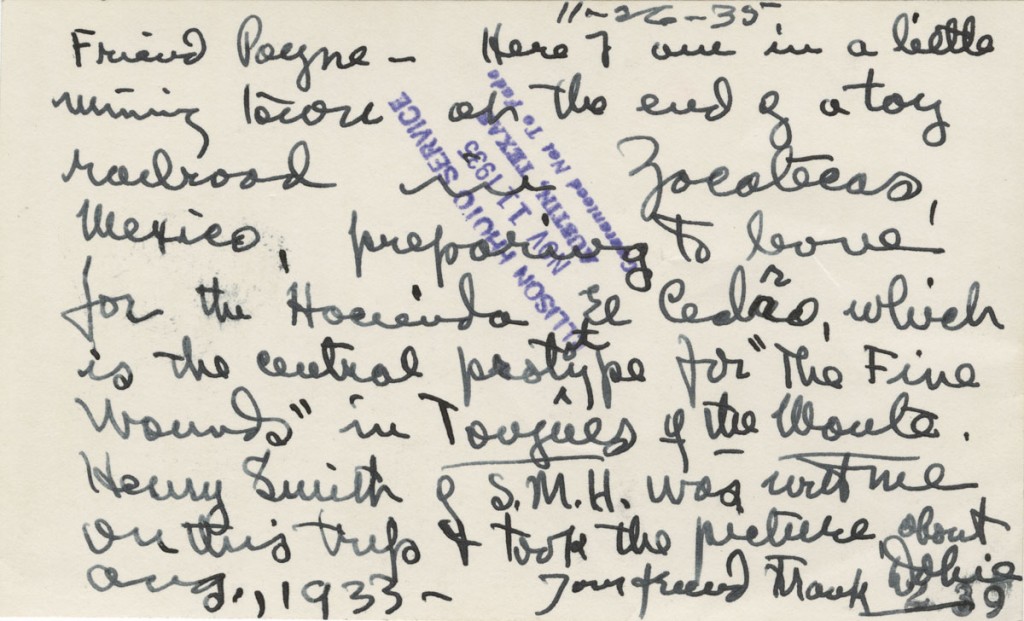 11-26-35
Friend Payne - Here I am in a little
mining town at the end of a toy
railroad in Zacatecas,
Mexico, preparing to leave
for the Hacienda El Cedro, which
r
is the central prototype for "The Five
Wounds" in Tongues of the Monte.
Henry Smith of S.M.H. was with me
on this trip & took the picture, about
Aug., 1933- Your friend Frank Dobie
239
ELLISON PHOTO SERVICE
NOV 11 1935
AUSTIN, TEXAS
Guaranteed Not To Fade